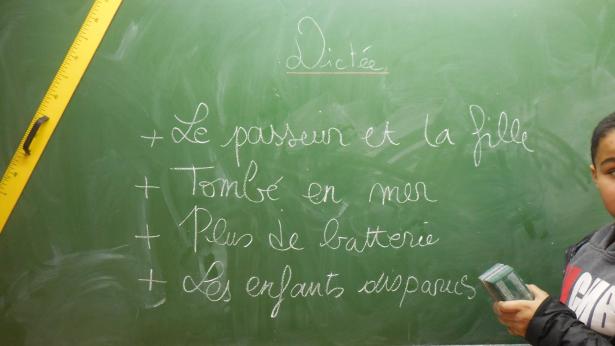 Dictée
+ Le passeur et la fille
+ Tombé en mer
+ Plus de batterie
+ Les enfants disparus